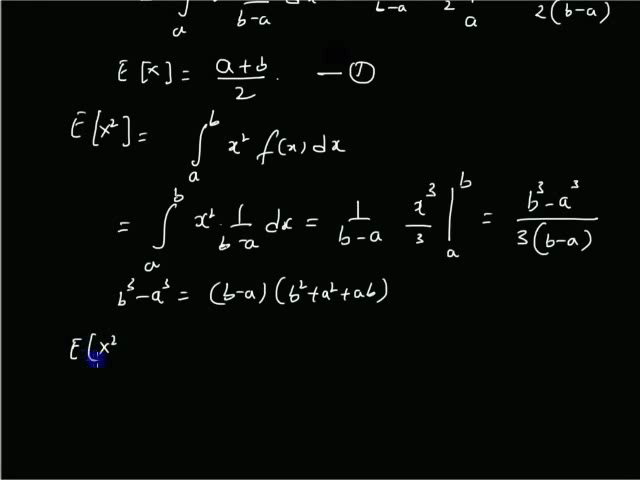 ∫ₐ b-a b-a 2 a 2(b-a)
E[x] = (a+b)/2 . — ①
E[x²] = ∫ₐᵇ x² f(x) dx
= ∫ₐᵇ x² · 1/(b-a) dx = 1/(b-a) x³/3 |ₐᵇ = (b³-a³)/(3(b-a))
b³-a³ = (b-a)(b²+a²+ab)
E[x²